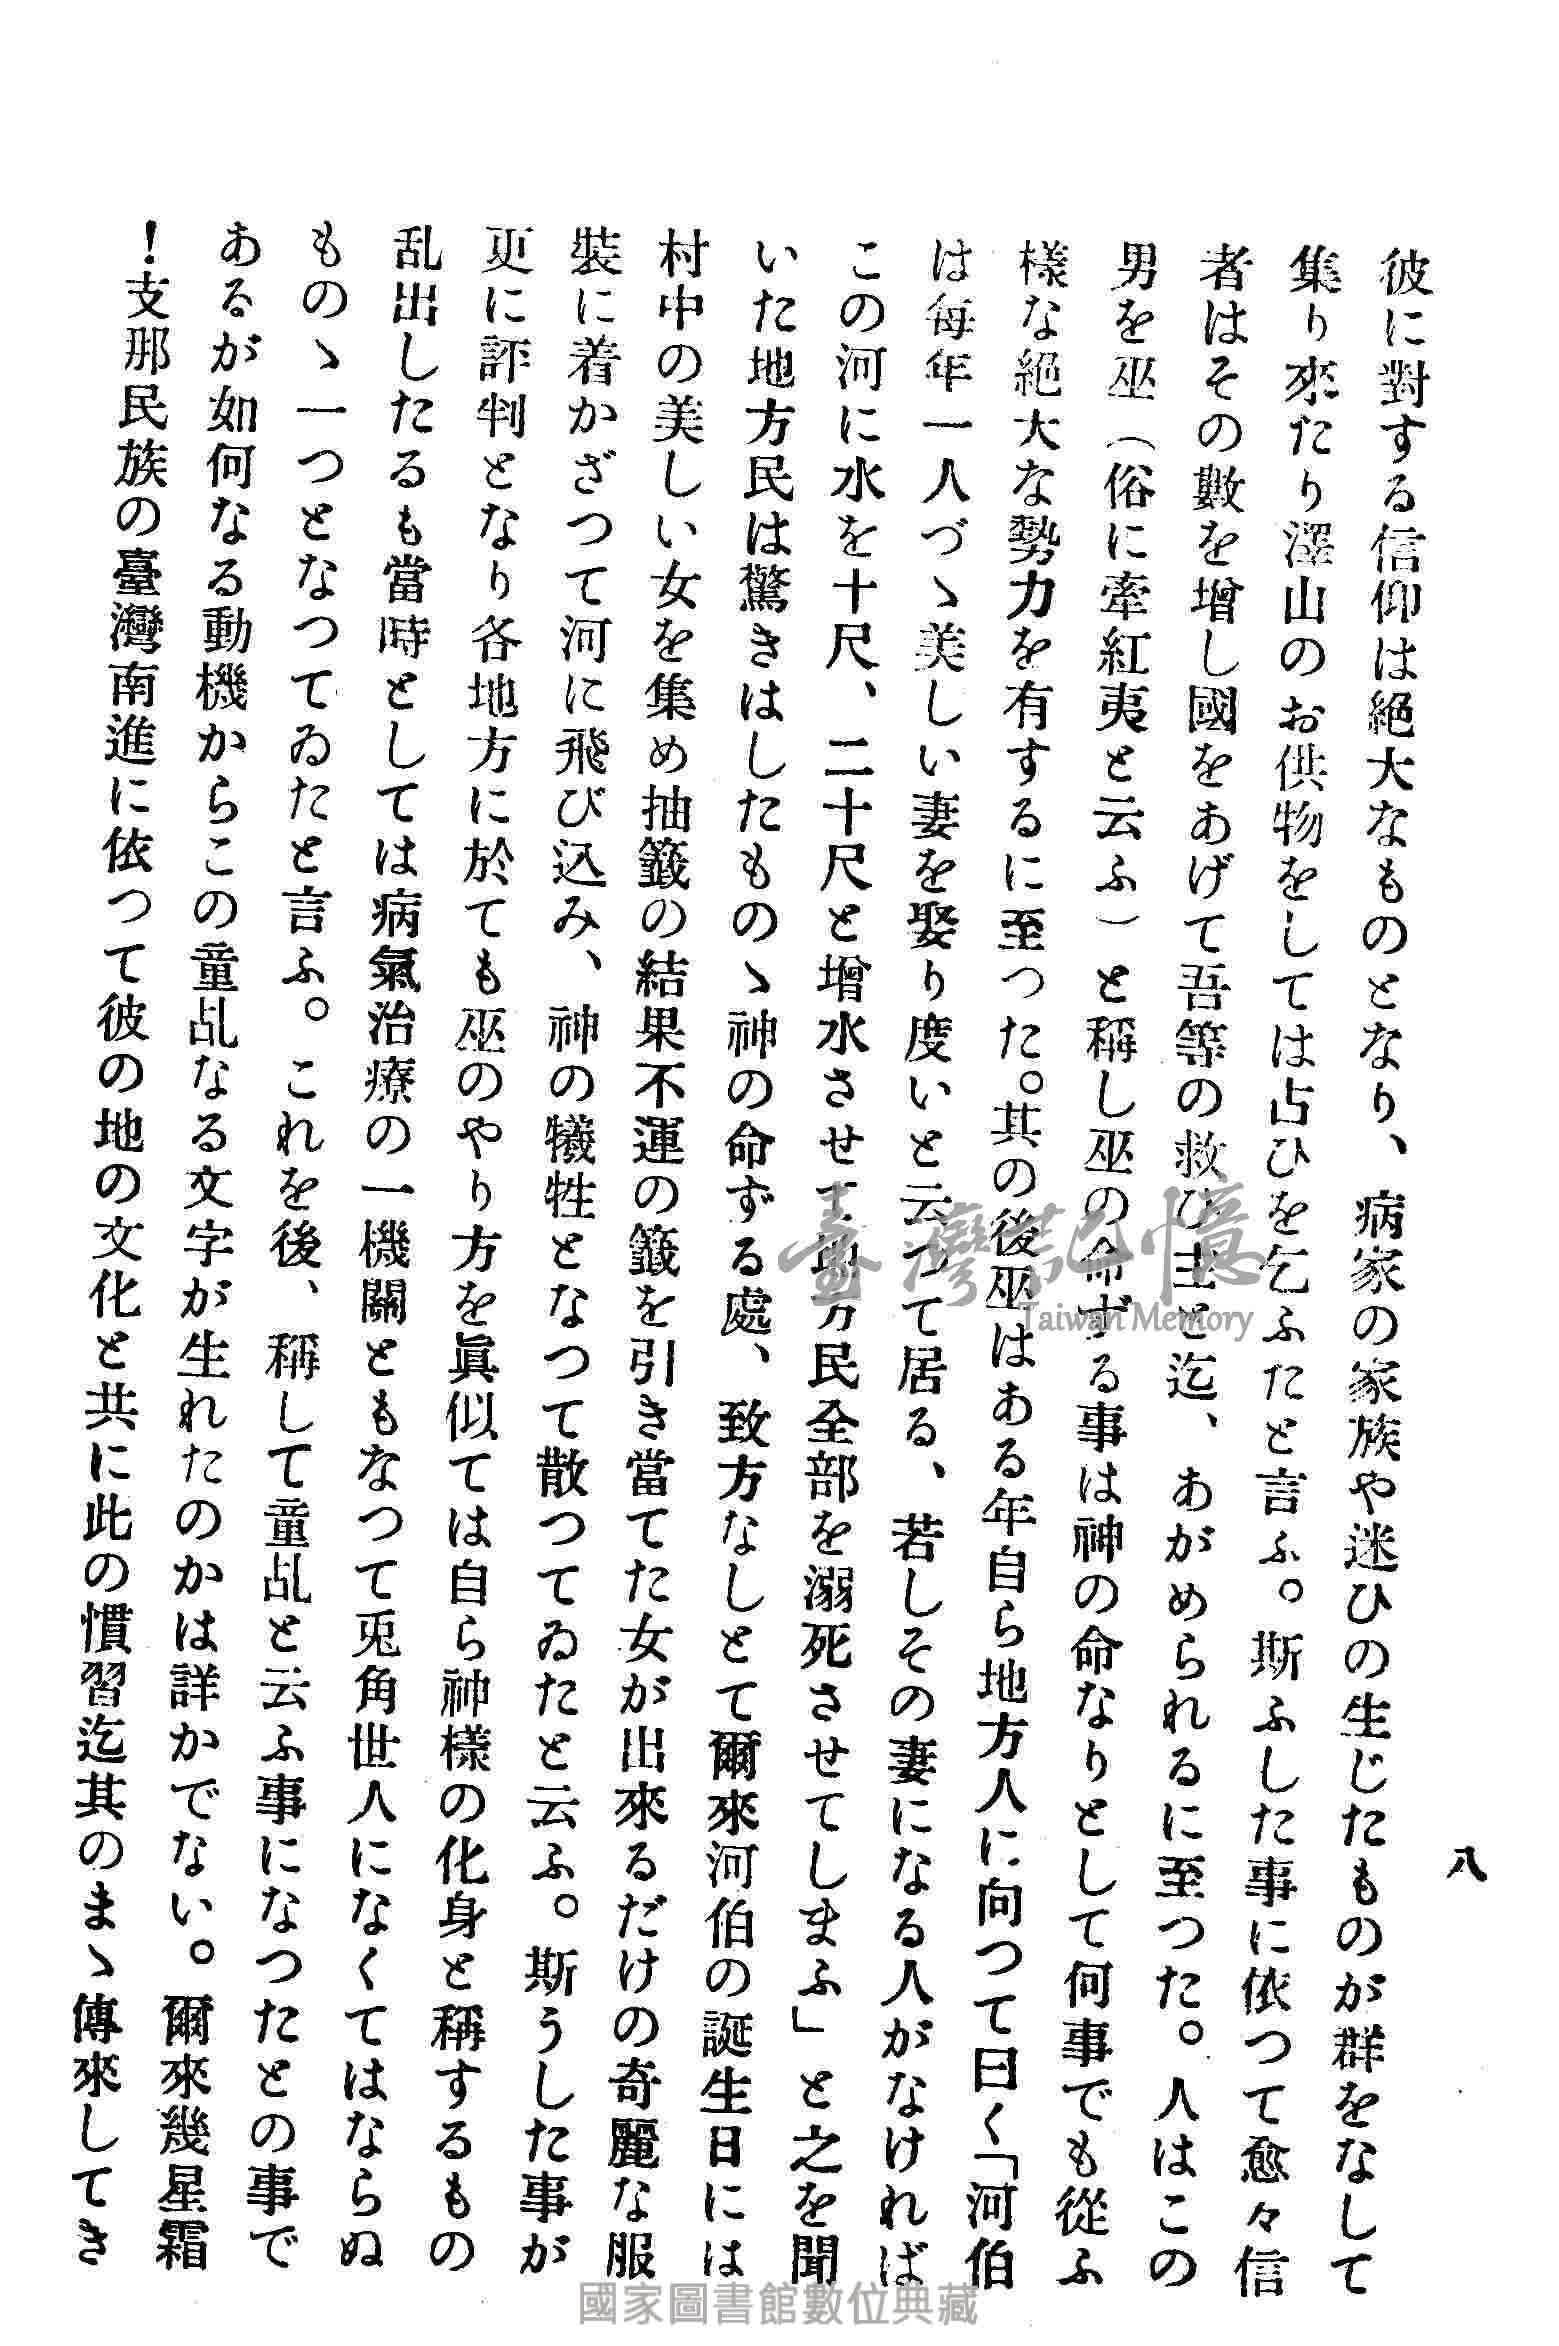 八
彼に對する信仰は絕大なものとなり、病家の家族や迷ひの生じたものが群をなして
集り來たり澤山のお供物をしては占ひを乞ふたと言ふ。斯ふした事に依つて愈々信
者はその數を增し國をあげて吾等の救ひ主と迄、あがめられるに至つた。人はこの
男を巫（俗に牽紅夷と云ふ）と稱し巫の命ずる事は神の命なりとして何事でも從ふ
樣な絕大な勢力を有するに至つた。其の後巫はある年自ら地方人に向つて曰く「河伯
は每年一人づゝ美しい妻を娶り度いと云つて居る、若しその妻になる人がなければ
この河に水を十尺、二十尺と增水させて地方民全部を溺死させてしまふ」と之を聞
いた地方民は驚きはしたものゝ神の命ずる處、致方なしとて爾來河伯の誕生日には
村中の美しい女を集め抽籤の結果不運の籤を引き當てた女が出來るだけの奇麗な服
裝に着かざつて河に飛び込み、神の犧牲となつて散つてゐたと云ふ。斯うした事が
更に評判となり各地方に於ても巫のやり方を眞似ては自ら神樣の化身と稱するもの
乱出したるも當時としては病氣治療の一機關ともなつて兎角世人になくてはならぬ
ものゝ一つとなつてゐたと言ふ。これを後、稱して童乩と云ふ事になつたとの事で
あるが如何なる動機からこの童乩なる文字が生れたのかは詳かでない。爾來幾星霜
！支那民族の臺灣南進に依つて彼の地の文化と共に此の慣習迄其のまゝ傳來してき
臺灣記憶
Taiwan Memory
國家圖書館數位典藏